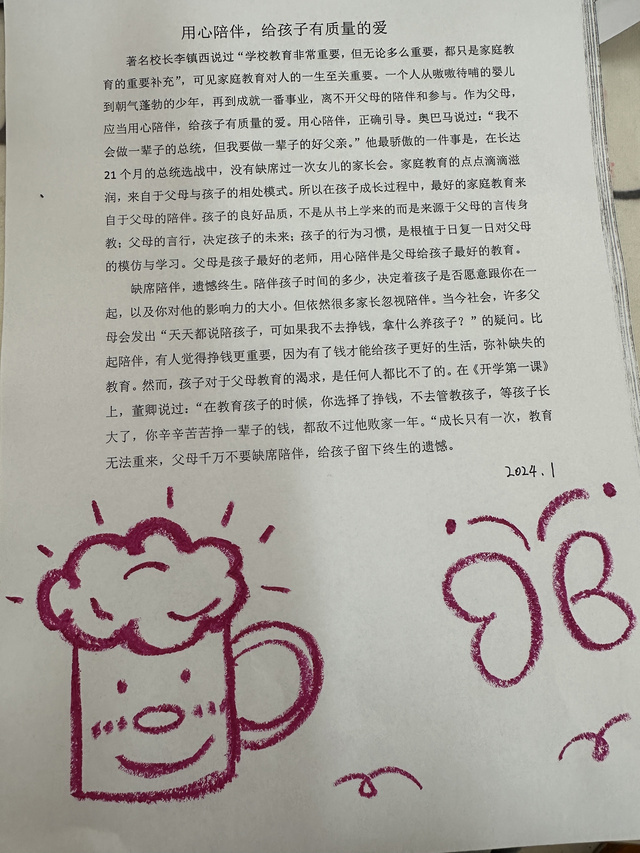 用心陪伴，给孩子有质量的爱
著名校长李镇西说过“学校教育非常重要，但无论多么重要，都只是家庭教
育的重要补充”，可见家庭教育对人的一生至关重要。一个人从嗷嗷待哺的婴儿
到朝气蓬勃的少年，再到成就一番事业，离不开父母的陪伴和参与。作为父母，
应当用心陪伴，给孩子有质量的爱。用心陪伴，正确引导。奥巴马说过：“我不
会做一辈子的总统，但我要做一辈子的好父亲。”他最骄傲的一件事是，在长达
21 个月的总统选战中，没有缺席过一次女儿的家长会。家庭教育的点点滴滴滋
润，来自于父母与孩子的相处模式。所以在孩子成长过程中，最好的家庭教育来
自于父母的陪伴。孩子的良好品质，不是从书上学来的而是来源于父母的言传身
教；父母的言行，决定孩子的未来；孩子的行为习惯，是根植于日复一日对父母
的模仿与学习。父母是孩子最好的老师，用心陪伴是父母给孩子最好的教育。
缺席陪伴，遗憾终生。陪伴孩子时间的多少，决定着孩子是否愿意跟你在一
起，以及你对他的影响力的大小。但依然很多家长忽视陪伴。当今社会，许多父
母会发出“天天都说陪孩子，可如果我不去挣钱，拿什么养孩子？”的疑问。比
起陪伴，有人觉得挣钱更重要，因为有了钱才能给孩子更好的生活，弥补缺失的
教育。然而，孩子对于父母教育的渴求，是任何人都比不了的。在《开学第一课》
上，董卿说过：“在教育孩子的时候，你选择了挣钱，不去管教孩子，等孩子长
大了，你辛辛苦苦挣一辈子的钱，都敌不过他败家一年。“成长只有一次，教育
无法重来，父母千万不要缺席陪伴，给孩子留下终生的遗憾。
2024.1